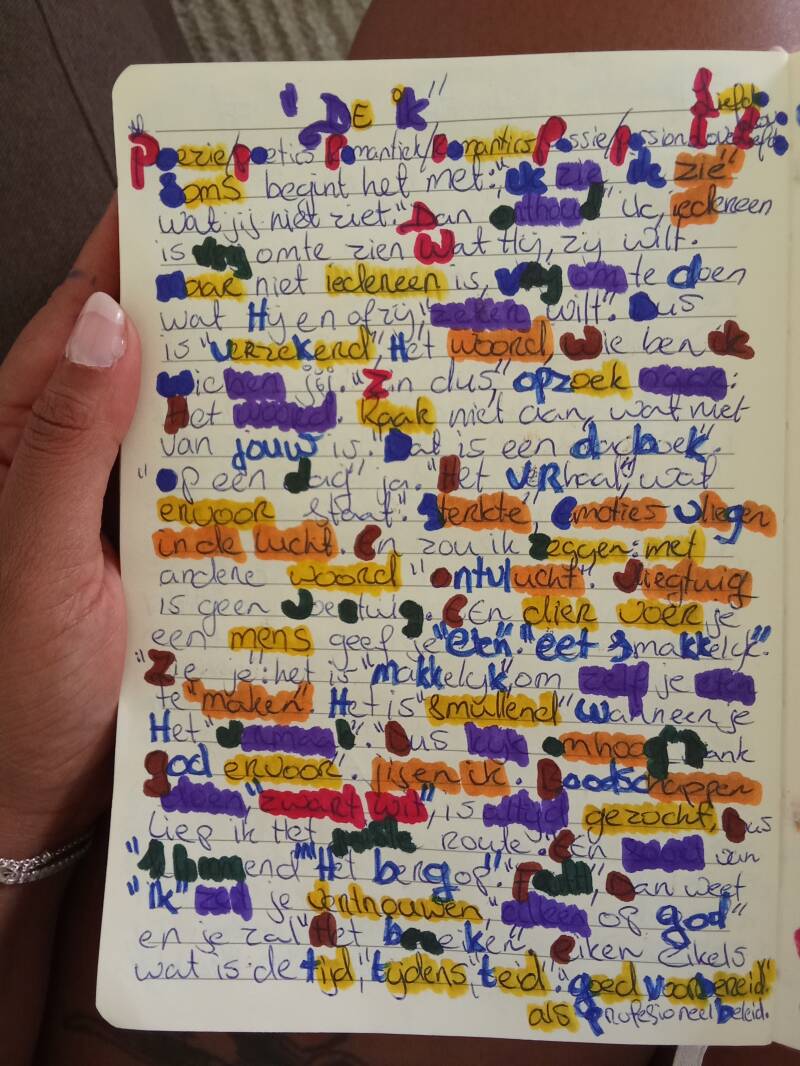 "DE "k"
Liefde
Poezie/poetics Romantiek/Romantics Passie/passion Love Liefde
Soms begint het met: "ik zie ik zie"
wat jij niet ziet. "Dan onthoud ik, iedereen
is omte zien Wat Hij, zij wilt.
Maar niet iedereen is, om te doen
wat Hij en of zij, "zeker wilt". Dus
is "verzekerd", Het woord, Wie ben ik
wie ben jij. "Zin dus, opzoek naar:
Het woord. Raak niet aan, wat niet
van jouw is. "Dat is een dagboek".
"Op een dag" ja. "Het verhaal, wat
ervoor staat". Sterkte, Emoties vliegen
in de lucht. En zou ik zeggen: met
andere woord "ontvlucht". Vliegtuig
is geen Voertuig. EEn dier voer je
een mens geef je "eten". "eet smakkelijk."
"Zie je: het is "makkelijk, om zelf je eten
te "maken". Het is "smullend" wanneer je
Het . "Dus kijk omhoog Dank
god ervoor". jij en ik. Boodschappen
doen, "zwart wit", is altijd gezocht, Dus
liep ik Het route. "EEn van
"Het berg op". , Dan weet
"ik" zal je vertrouwen, alleen op god"
en je zal "Het bereiken" eiken eikels
wat is de tijd, "tijdens, "teid". "goed voorbereid."
als profesioneel beleid.